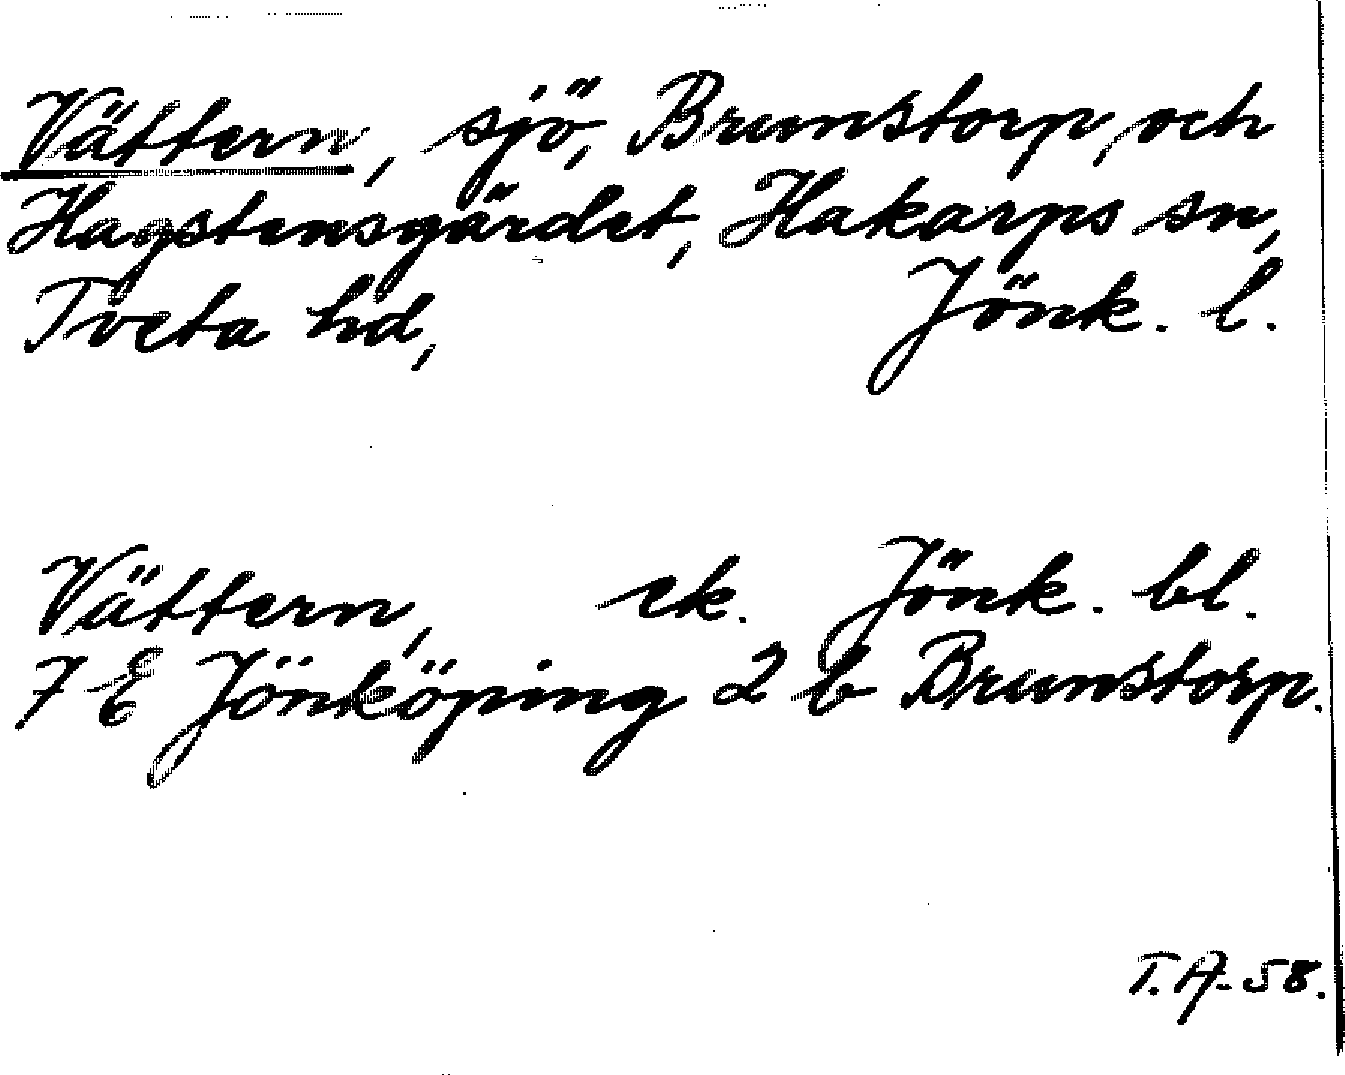 Vättern, sjö, Brunstorp, och
Hagstensgärdet, Hakarps sn,
Tveta hd, Jönk. l.
Vättern, ek. Jönk. bl.
7 E Jönköping 2 b Brunstorp.
T. A-58.